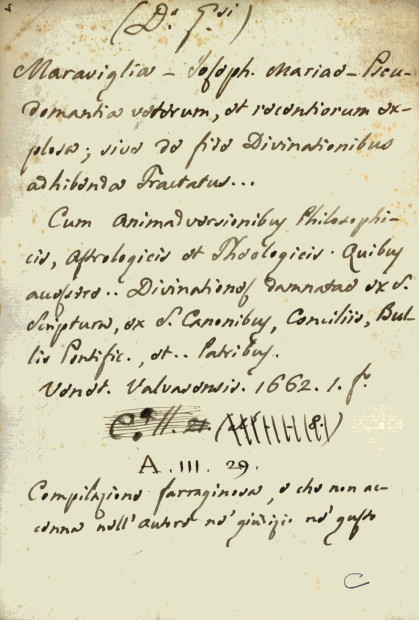 (D.ª G.si)
Maraviglia - Joseph. Mariae - Pseu-
domantia veterum, et recentiorum ex-
plosa; sive de fide Divinationibus
adhibenda Tractatus...
Cum Animadversionibus Philosophi-
cis, Astrologicis et Theologicis. Quibus
aussere.. Divinationes damnatae ex S.
Scriptura, ex S. Canonibus, Conciliis, Bul-
lis Pontific., et.. Patribus.
Venet. Valvasensis. 1662. 1. f.
A. III. 29.
Compilazione farraginosa, e che non ac-
cenna nell'autore nè giudizio nè gusto
C